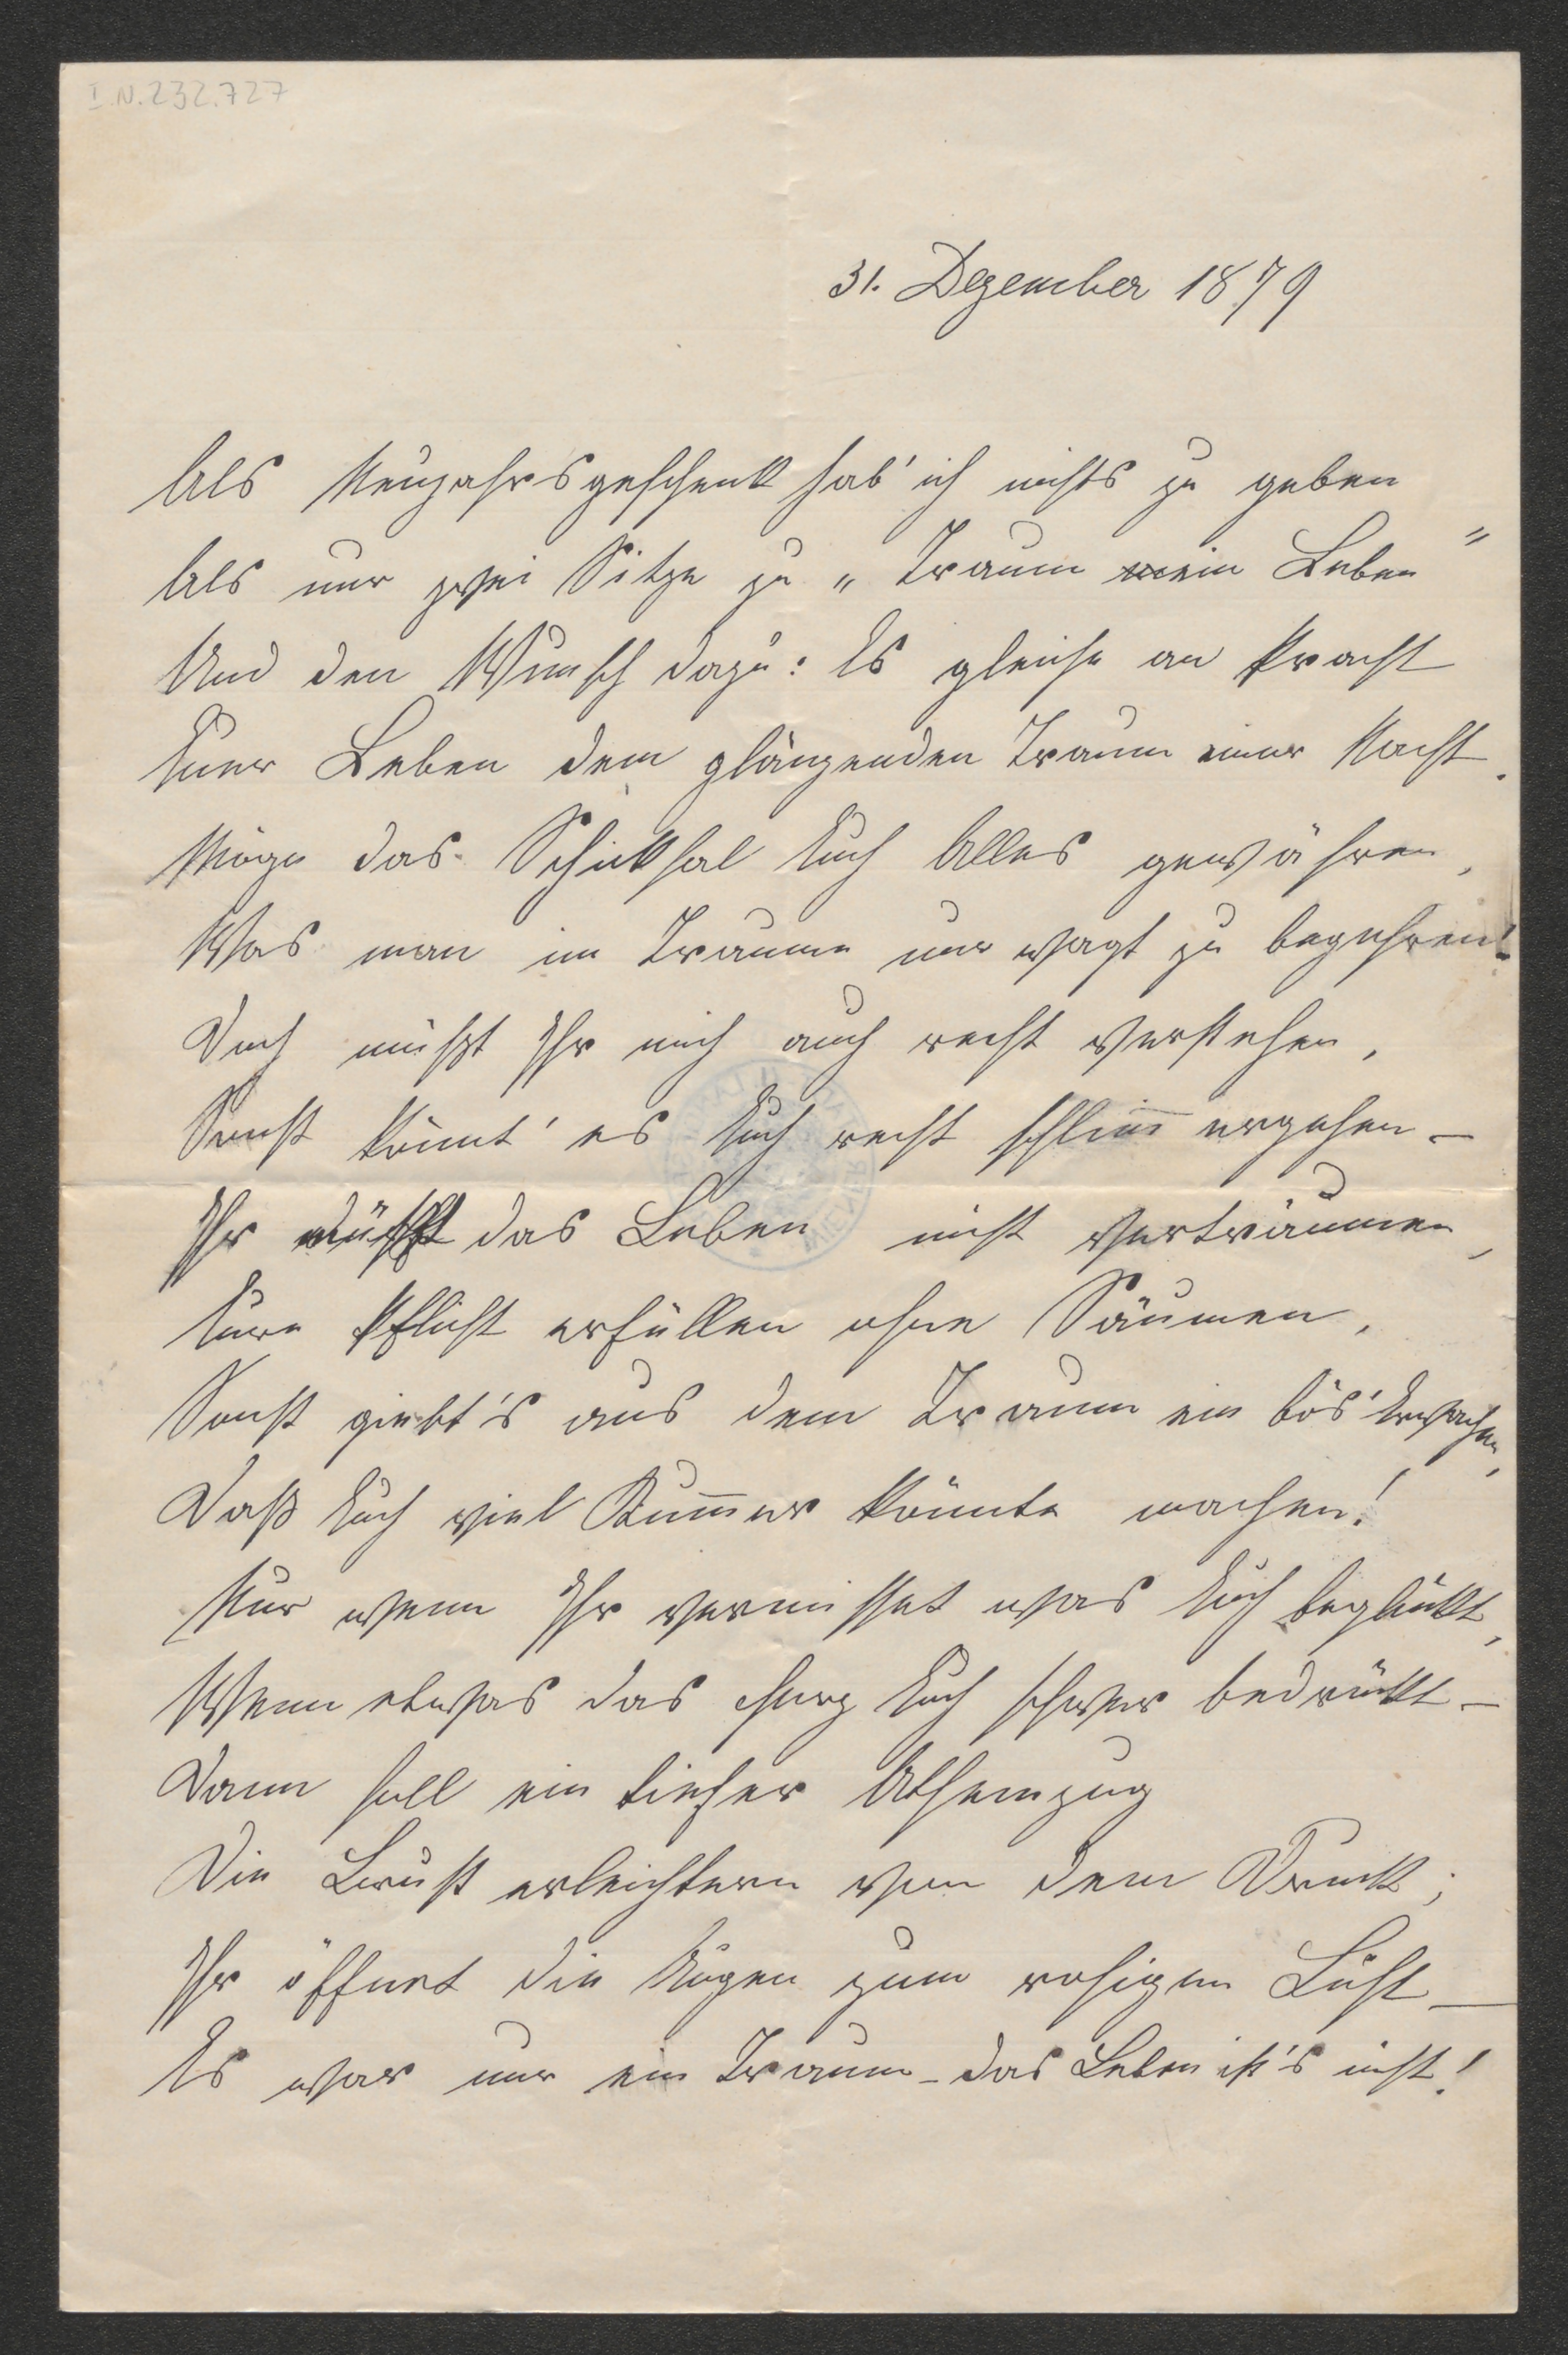 I.N.232.727
31. Dezember 1879
Als Neujahrsgeschenk hab' ich nichts zu geben
Als nur zwei Sitze zu „Traum ein Leben"
Und den Wunsch dazu: Es gleiche an Pracht
Euer Leben dem glänzenden Traum einer Nacht.
Möge das Schicksal Euch Alles gewähren,
Was man im Traume nur wagt zu begehren!
Doch müßt Ihr mich auch recht verstehen,
Sonst könnt' es Euch recht schlim̅ ergehen –
Ihr müßt das Leben nicht verträumen,
Eure Pflicht erfüllen ohne Säumen,
Sonst giebt's aus dem Traum ein bös' Erwachen,
Daß Euch viel Kum̅er könnte machen!
Nur wenn Ihr vermisset was Euch beglückt,
Wenn etwas das Herz Euch schwer bedrückt –
Dann soll ein tiefer Athemzug
Die Brust erleichtern von dem Druck;
Ihr öffnet die Augen zum rosigen Licht –
Es war nur ein Traum – das Leben ist's nicht!